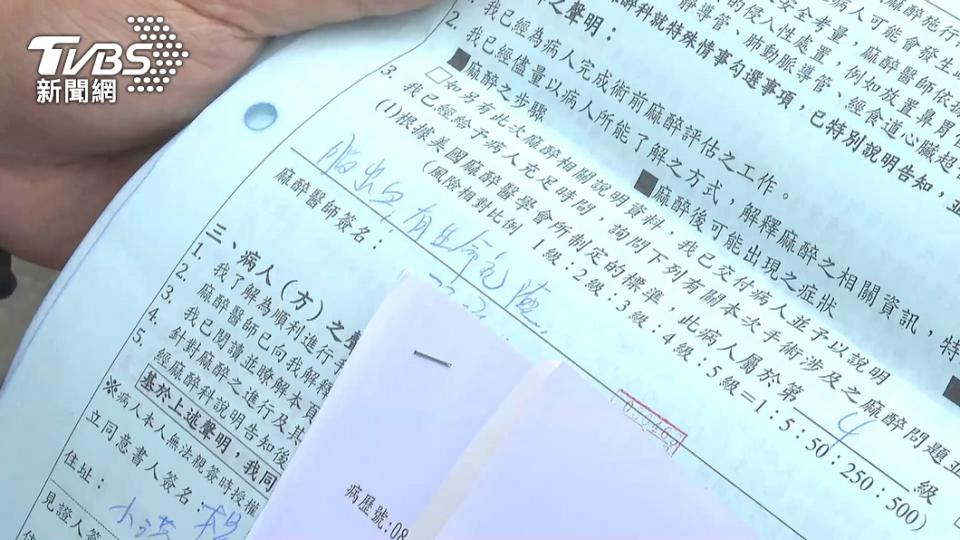 TVBS
新聞網
病人可能會發生
安全考量，麻醉醫師依
的侵入性處置，例如放置鼻胃
靜導管、肺動脈導管、經食道心臟超
醉科就特殊情事勾選事項，已特別說明告知，並
之聲明：
1. 我已經為病人完成術前麻醉評估之工作。
2. 我已經儘量以病人所能了解之方式，解釋麻醉之相關資訊，特
■麻醉之步驟 ■麻醉後可能出現之症狀
□如另有此次麻醉相關說明資料，我已交付病人並予以說明
3. 我已經給予病人充足時間，詢問下列有關本次手術涉及之麻醉問題並
(1)根據美國麻醉醫學會所制定的標準，此病人屬於第 4 級
(風險相對比例 1級：2級：3級：4級：5級＝1：5：50：250：500)
腦出血,有生命危險.
麻醉醫師簽名：
三、病人（方）之聲
1. 我了解為順利進行手
2. 麻醉醫師已向我解釋
3. 我已閱讀並瞭解本頁
4. 針對麻醉之進行及其
5. 經麻醉科說明告知後
基於上述聲明，我同
※病人本人無法親簽時授權
立同意書人簽名：
住址：
見證人簽
病歷號:08